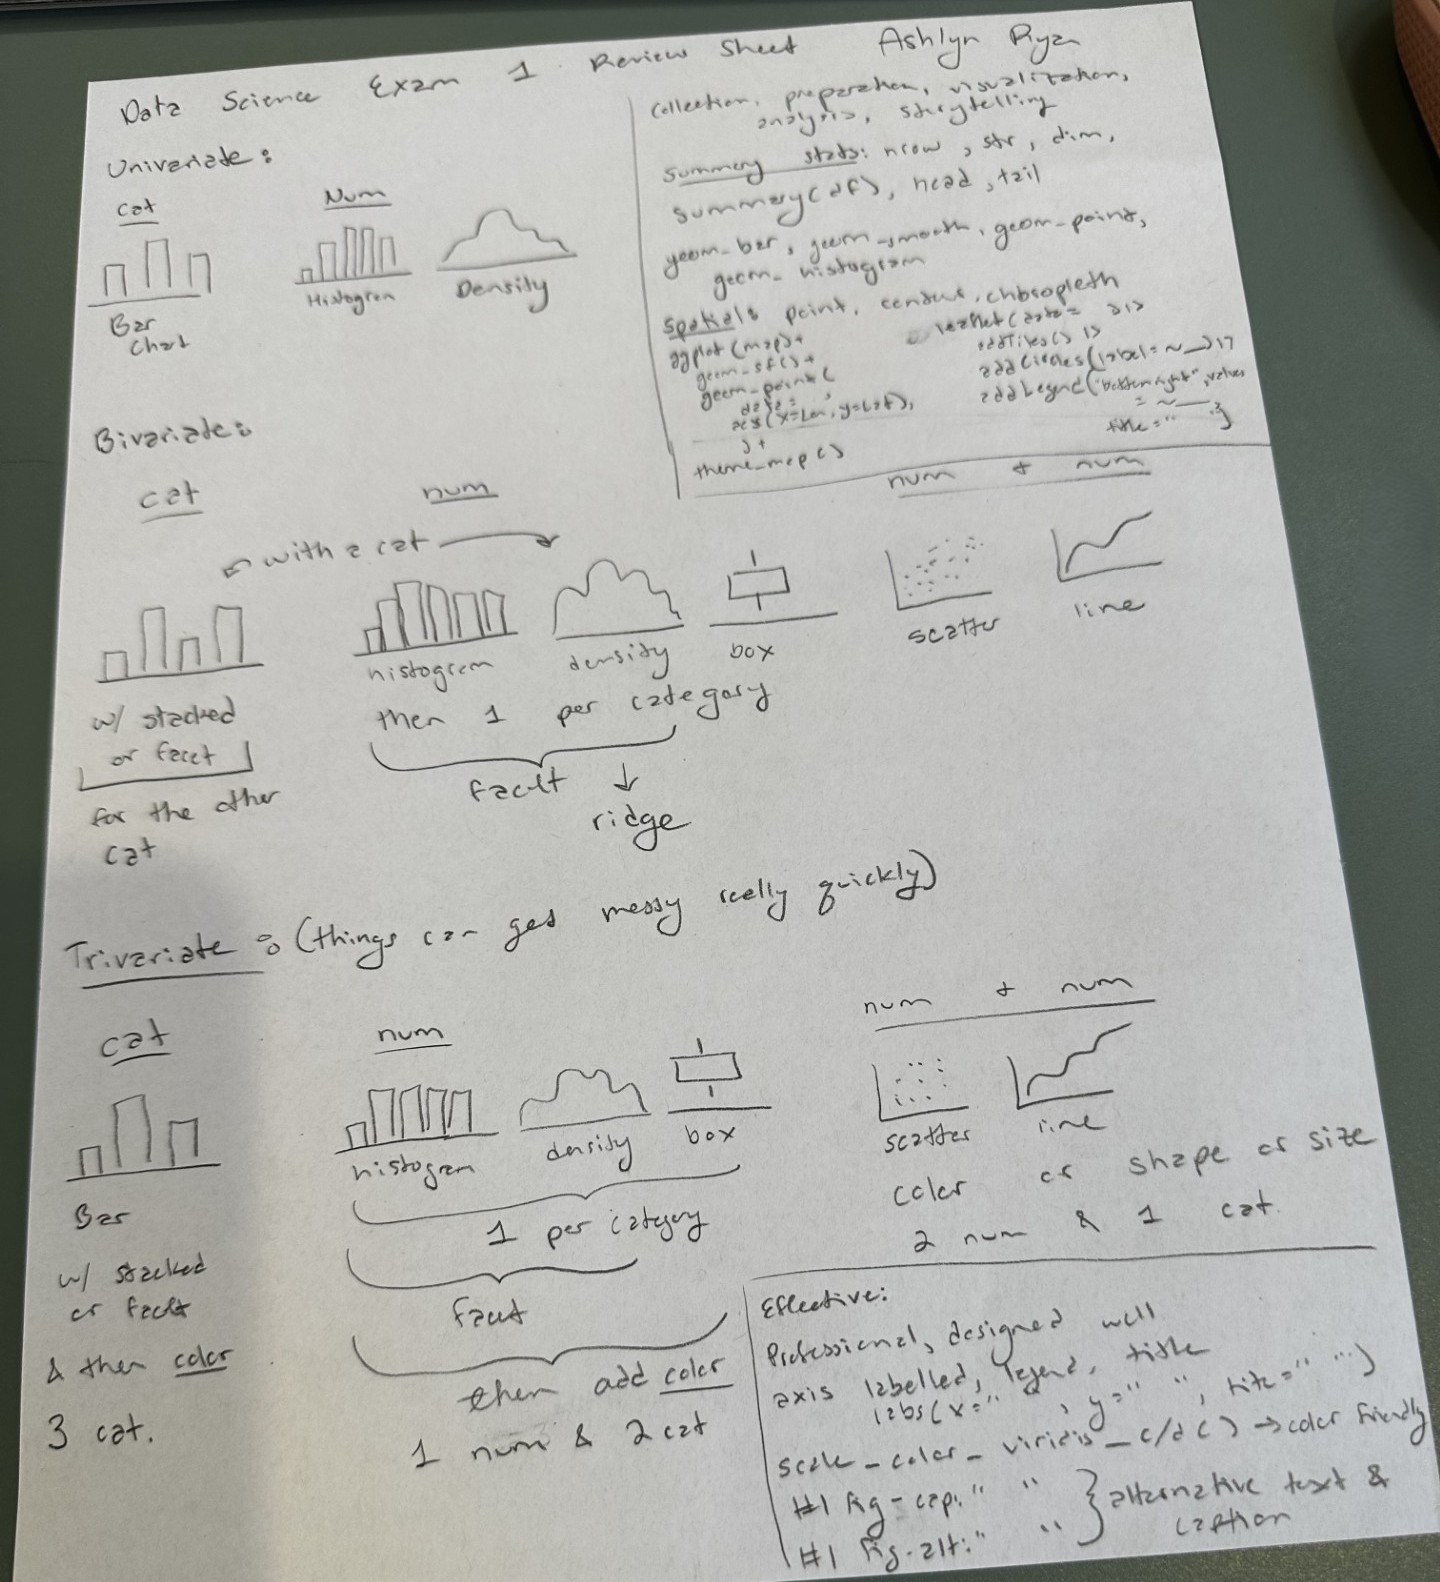 Data Science Exam 1 Review Sheet Ashlyn Ryan
Univariate:
cat
Bar
Chart
Num
Histogram
Density
collection, preparation, visualization,
analysis, storytelling
summary stats: nrow, str, dim,
summary(df), head, tail
geom_bar, geom_smooth, geom_point,
geom_histogram
Spatial: point, contour, chloropleth
ggplot(map)+
geom_sf()+
geom_point(
data= ,
aes(x=Lon, y=Lat),
)+
theme_map()
leaflet(data= ) |>
addTiles() |>
addCircles(label=~__) |>
addLegend("bottomright", values
= ~__,
title=" ")
Bivariate:
cat
w/ stacked
or facet
for the other
cat
num
with a cat
histogram
density
box
then 1 per category
facet
ridge
num + num
scatter
line
Trivariate: (things can get messy really quickly)
cat
Bar
w/ stacked
or facet
& then color
3 cat.
num
histogram
density
box
1 per category
facet
then add color
1 num & 2 cat
num + num
scatter
line
color or shape or size
2 num & 1 cat.
Effective:
Professional, designed well
axis labelled, legend, title
labs(x=" ", y=" ", title=" ")
scale_color_viridis_c/d() → color friendly
#| fig-cap: " "
#| fig-alt: " "
alternative text &
caption